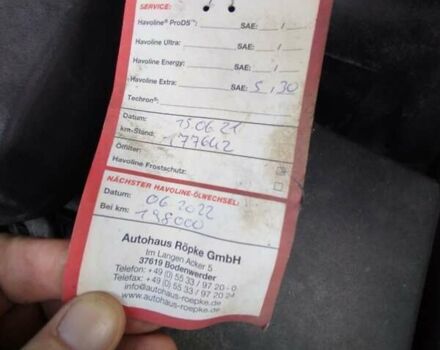 SERVICE:
Havoline® ProDS™: SAE: /
Havoline Ultra: SAE: /
Havoline Energy: SAE: /
Havoline Extra: SAE: 5 / 30
Techron®:
Datum: 15.06.21
km-Stand: 177642
Ölfilter:
Havoline Frostschutz:
NÄCHSTER HAVOLINE-ÖLWECHSEL:
Datum: 06.2022
Bei km: 198000
Autohaus Röpke GmbH
Im Langen Acker 5
37619 Bodenwerder
Telefon: +49 (0) 55 33 / 97 20 - 0
Telefax: +49 (0) 55 33 / 97 20 24
info@autohaus-roepke.de
www.autohaus-roepke.de